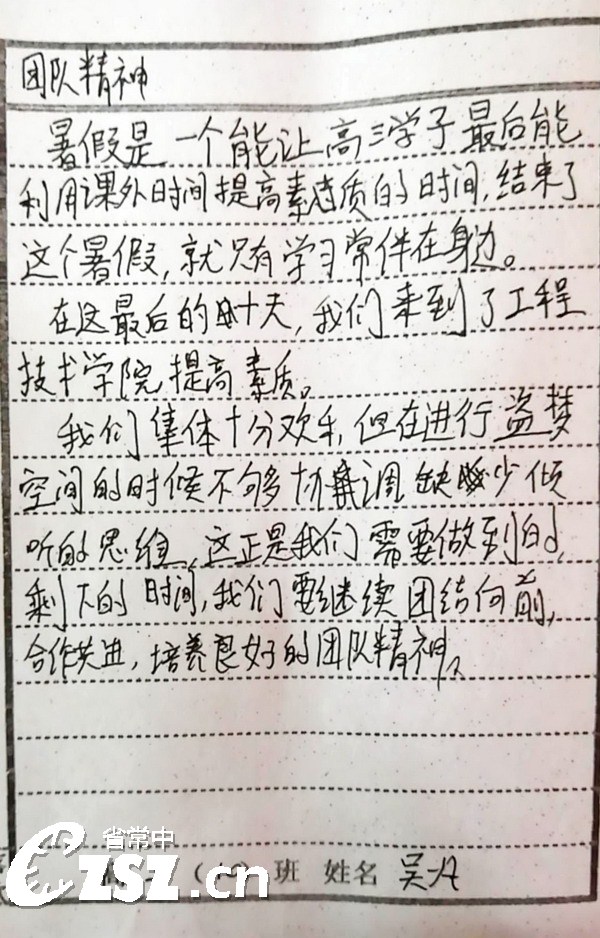 团队精神
暑假是一个能让高三学子最后能
利用课外时间提高素质的时间,结束了
这个暑假,就只有学习常伴在身边。
在这最后的十天,我们来到了工程
技术学院提高素质。
我们集体十分欢乐,但在进行盗梦
空间的时候不够协调,缺少倾
听的思维,这正是我们需要做到的,
剩下的时间,我们要继续团结向前,
合作共进,培养良好的团队精神。
省常中
CZSZ.cn
班 姓名 吴